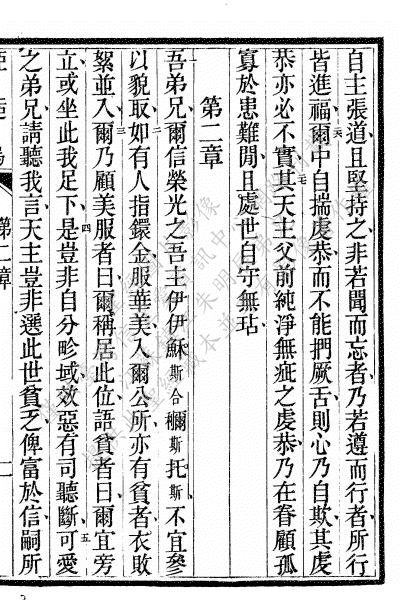 自主張道且堅持之非若聞而忘者乃若遵而行者所行
皆進福爾中自揣虔恭而不能捫厥舌則心乃自欺其虔
恭亦必不實其天主父前純淨無疵之虔恭乃在眷顧孤
寡於患難閒且處世自守無玷
第二章
吾弟兄爾信榮光之吾主伊伊穌斯合穪斯托斯不宜參
以貌取如有人指鐶金服華美入爾公所亦有貧者衣敗
絮並入爾乃顧美服者曰爾稱居此位語貧者曰爾宜旁
立或坐此我足下是豈非自分畛域效惡有司聽斷可愛
之弟兄請聽我言天主豈非選此世貧乏俾富於信嗣所
第二章
二